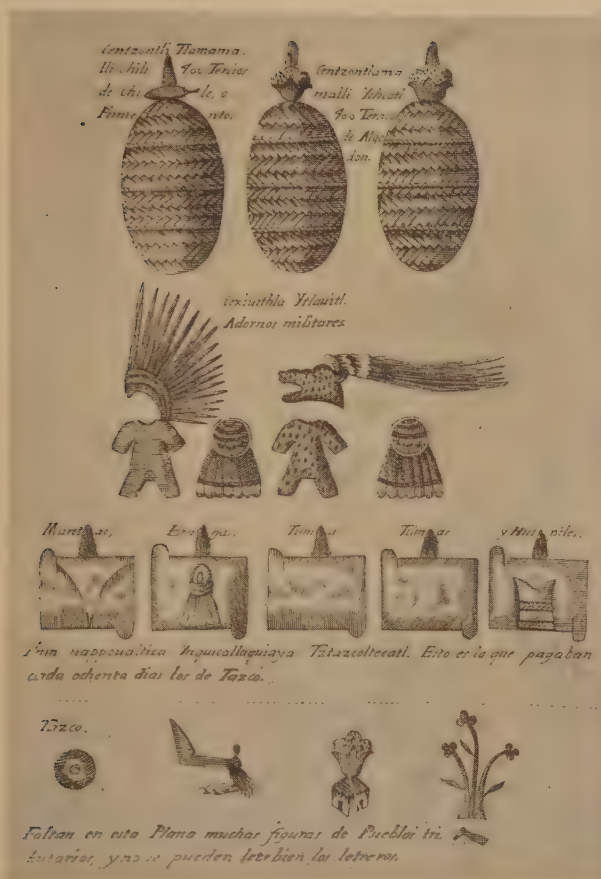 Centzontli Tlamama.
lli chili 400 Tercios
de chi le, o
Pimie nto.
Centzontlama
malli Ychcatl
400 Ter
de Algo
don.
Ytlauitl.
Adornos militares
Mantas,
y Hui piles.
nappoualtica Ynquicallaquiaya Tlatlazcoltecatl. Esto es lo que pagaban
cada ochenta dias los de Tazco.
Tazco.
Faltan en esta Plana muchas figuras de Pueblos tri
butarios, y no se pueden leer bien los letreros.